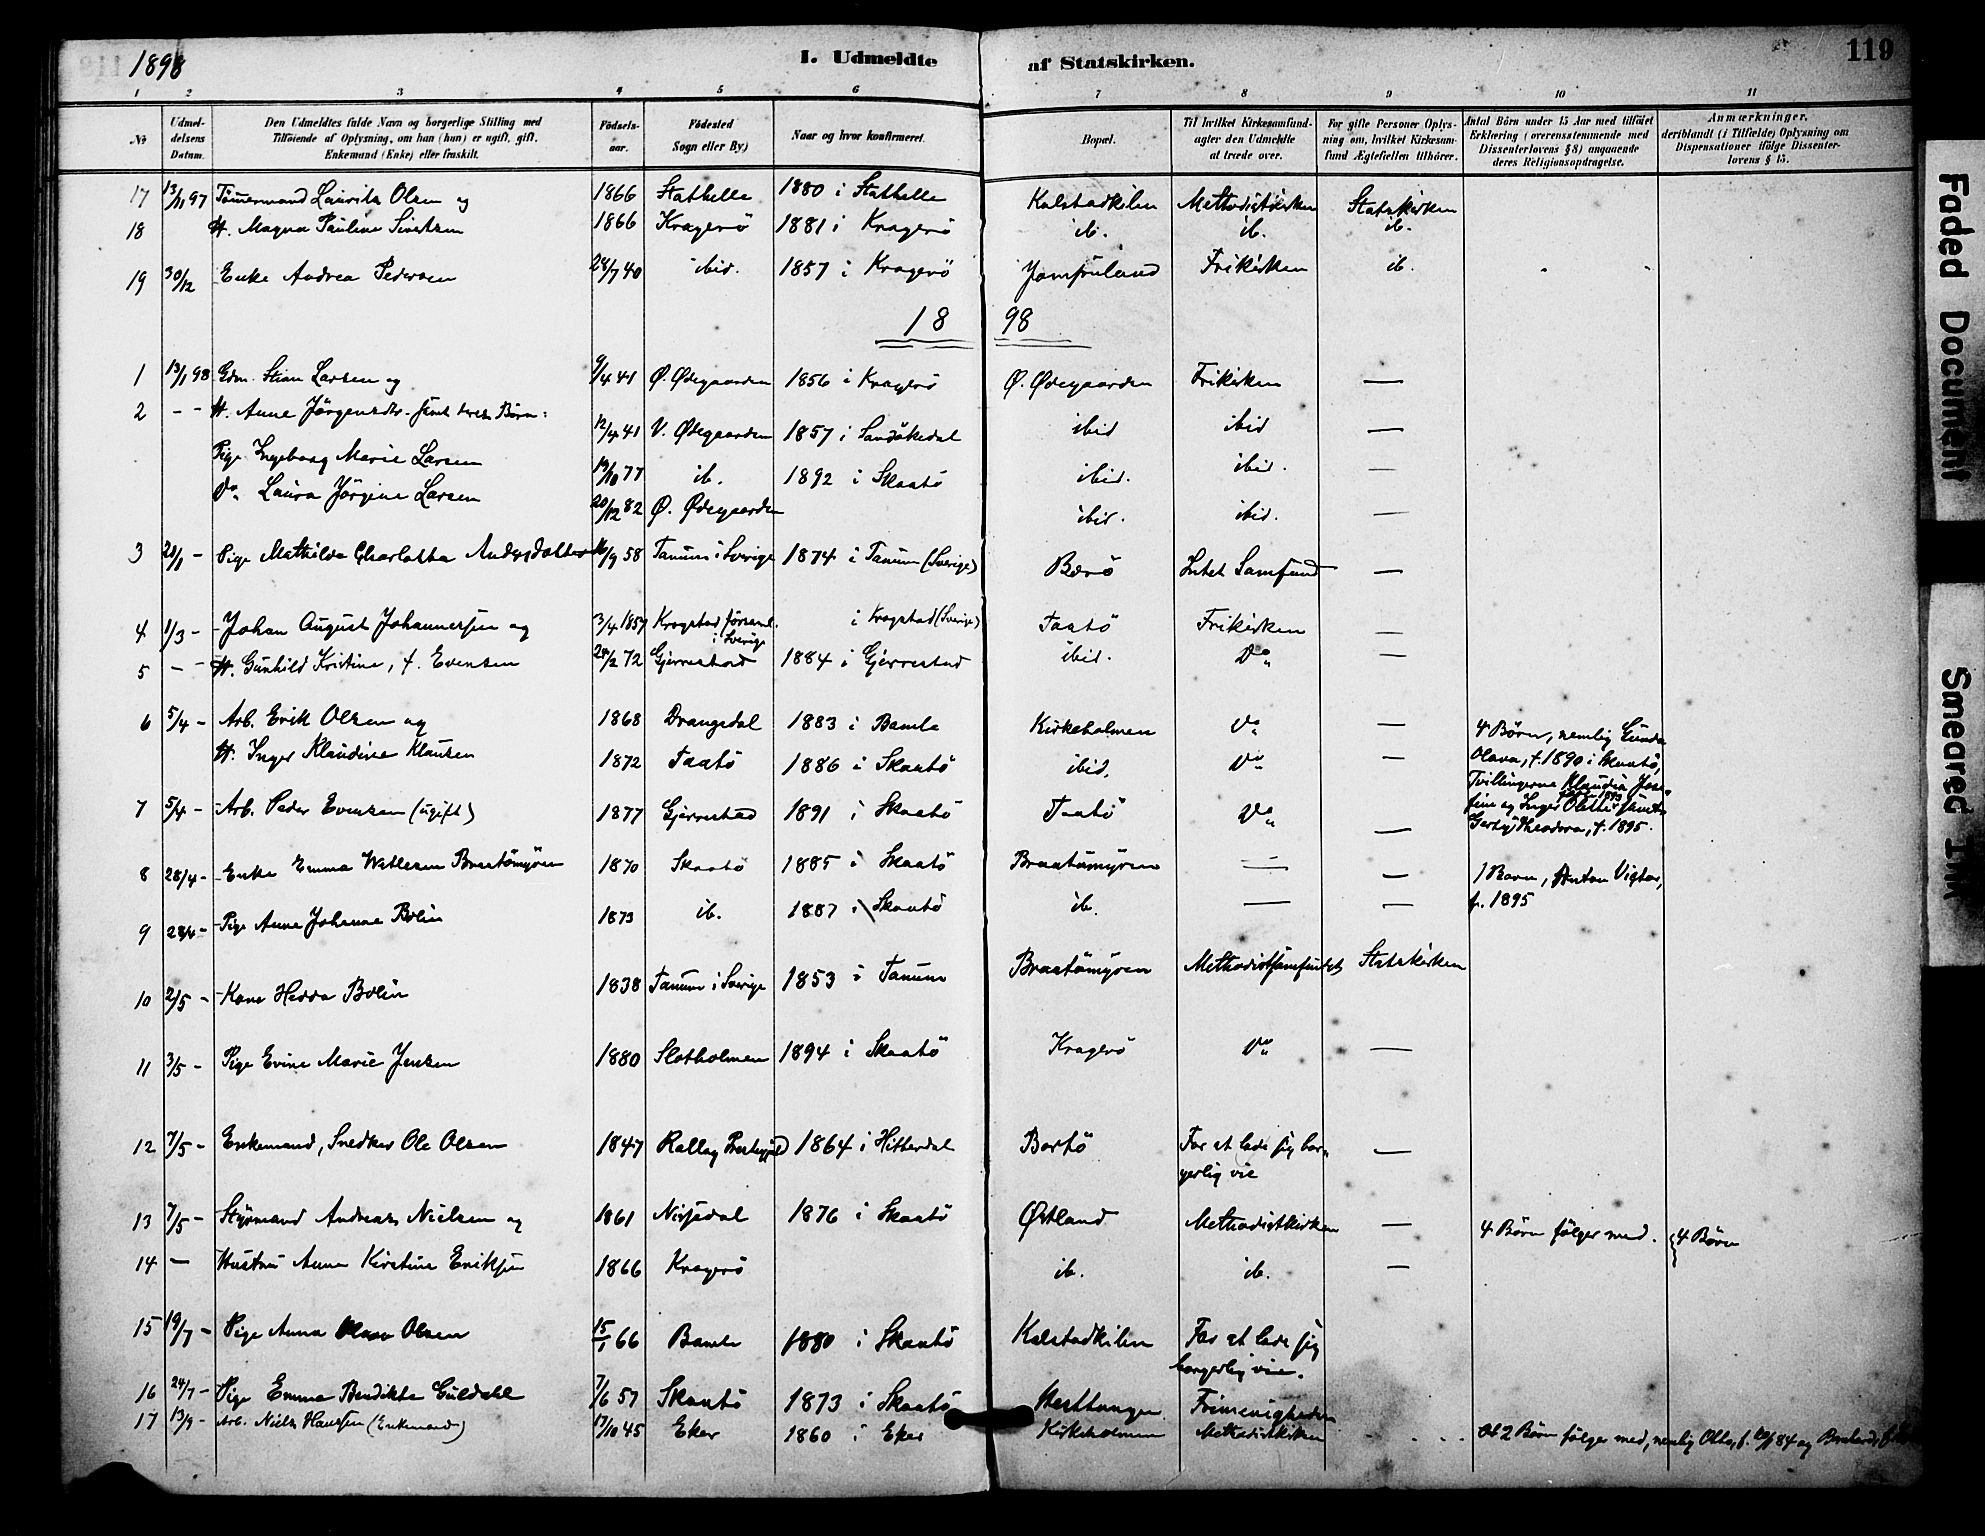 1898
I. Udmeldte af Statskirken.
119
1 2 3 4 5 6 7 8 9 10 11
No
Udmel-
delsens
Datum.
Den Udmeldtes fulde Navn og borgerlige Stilling med
Tilføiende af Oplysning, om han (hun) er ugift, gift,
Enkemand (Enke) eller fraskilt.
Fødsels-
aar.
Fødested
Sogn eller By)
Naar og hvor konfirmeret.
Bopæl.
Til hvilket Kirkesamfund-
agter den Udmeldte
at træde over.
For gifte Personer Oplys-
ning om, hvilket Kirkesam-
fund Ægtefællen tilhører.
Antal Børn under 15 Aar med tilføiet
Erklæring (overensstemmende med
Dissenterlovens § 8) angaaende
deres Religionsopdragelse.
Anmærkninger,
deriblandt (i Tilfælde) Oplysning om
Dispensationer ifølge Dissenter-
lovens § 15.
17 13/11 97 Tömermand Laurits Olsen og 1866 Stathelle 1880 i Stathelle Kalstadkilen Methodistkirken Statskirken
18 H. Magna Pauline Sivertsen 1866 Kragerö 1881 i Kragerö ib. ib. ib.
19 30/12 Enke Andrea Pedersen 24/7 40 ibid. 1857 i Kragerö Jomfruland Frikirken ib.
18 98
1 13/1 98 Gdm. Stian Larsen og 9/4 41 Ø. Ødegaarden 1856 i Kragerö Ø. Ødegaarden Frikirken —
2 - - H. Anne Jörgensdtr. samt deres Børn: 12/4 41 V. Ødegaarden 1857 i Sandökedal ibid ibid —
Pige Ingeborg Marie Larsen 13/10 77 ib. 1892 i Skaatö ibid. ibid. —
Do. Laura Jörgine Larsen 20/12 82 Ø. Ødegaarden ibid. ibid. —
3 20/1 - Pige Mathilda Charlotta Andersdotter 16/9 58 Tanum i Sverige 1874 i Tanum (Sverige) Berö Intet Samfund —
4 1/3 - Johan August Johannersen og 3/4 1857 Krogstad församl. i Sverige i Krogstad (Sverige) Taatö Frikirken —
5 - - H. Gunhild Kristine, f. Evensen 28/2 72 Gjerrestad 1884 i Gjerrestad ibid. Do. —
6 5/4 - Arb. Erik Olsen og 1868 Drangedal 1883 i Bamle Kirkeholmen Do. — 4 Børn, nemlig Gunda
H. Inger Klaudine Klausen 1872 Taatö 1886 i Skaatö ibid. Do. — Olava, f. 1890 i Skaatö,
Tvillingerne Klaudia Jose-
fine og Inger Olette f. 1893 samt
7 5/4 - Arb. Peder Evensen (ugift) 1877 Gjerrestad 1891 i Skaatö Taatö Do. — Theodora, f. 1895.
8 28/4 - Enke Emma Braatömyren 1870 Skaatö 1885 i Skaatö Braatömyren — — 1 Barn, Anton Vigtor,
f. 1895
9 28/4 - Pige Anne Johanne Bolin 1873 ib. 1887 i Skaatö ib. — —
10 2/5 - Kone Hedda Bolin 1838 Tanum i Sverige 1853 i Tanum Braatömyren Methodistsamfundet Statskirken
11 3/5 - Pige Evine Marie Jensen 1880 Slotholmen 1894 i Skaatö Kragerö Do. —
12 7/5 - Enkemand, Snedker Ole Olsen 1847 Rollag Prestegjeld 1864 i Hitterdal Bortö For at lade sig bor-
gerlig vie —
13 7/5 - Styrmand Andreas Nielsen og 1861 Nissedal 1876 i Skaatö Østland Methodistkirken — 4 Børn følger med. } 4 Børn
14 — Hustru Anne Kirstine Eriksen 1866 Kragerö ib. ib. —
15 19/7 - Pige Anna Olava Olsen 15/1 66 Bamle 1880 i Skaatö Kalstadkilen For at lade sig
borgerlig vie.
16 24/7 - Pige Emma Bendikte Guldahl 7/6 57 Skaatö 1873 i Skaatö Frimenigheden
17 13/9 - Arb. Niels Hansen (Enkemand) 17/10 45 Eker 1860 i Eker Kirkeholmen Methodistkirken 2 Børn følger med, nemlig Otto, f. 84 og
Faded Document
Smeared Ink